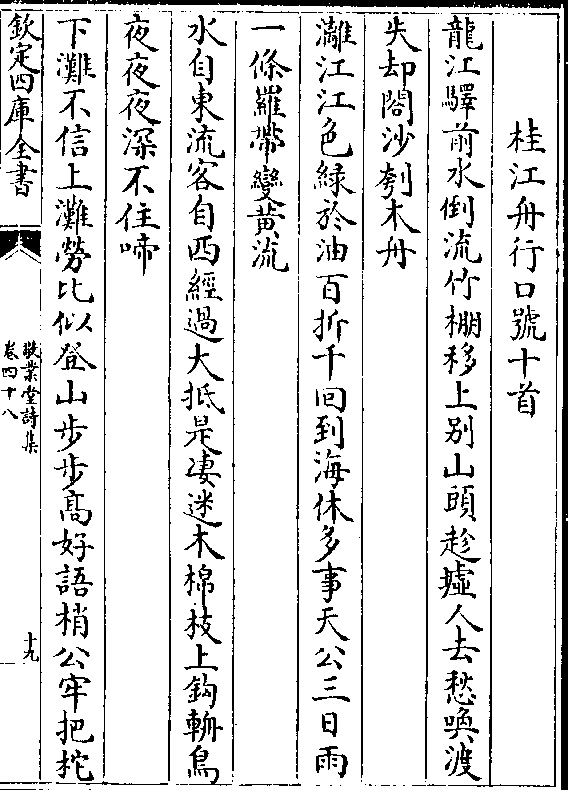 桂江舟行口號十首
龍江驛前水倒流竹棚移上别山頭趁墟人去愁喚渡
失却閣沙刳木舟
灕江江色緑於油百折千回到海休多事天公三日雨
一條羅帶變黄流
水自東流客自西經過大抵是凄迷木棉枝上鈎輈鳥
夜夜夜深不住啼
下灘不信上灘勞比似登山步步髙好語梢公牢把柁
欽定四庫全書
敬業堂詩集
卷四十八
十九